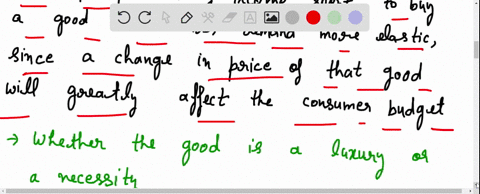 to buy
a good demand more elastic,
since a change in price of that good
will greatly affect the consumer budget
→ Whether the good is a luxury or
a necessity